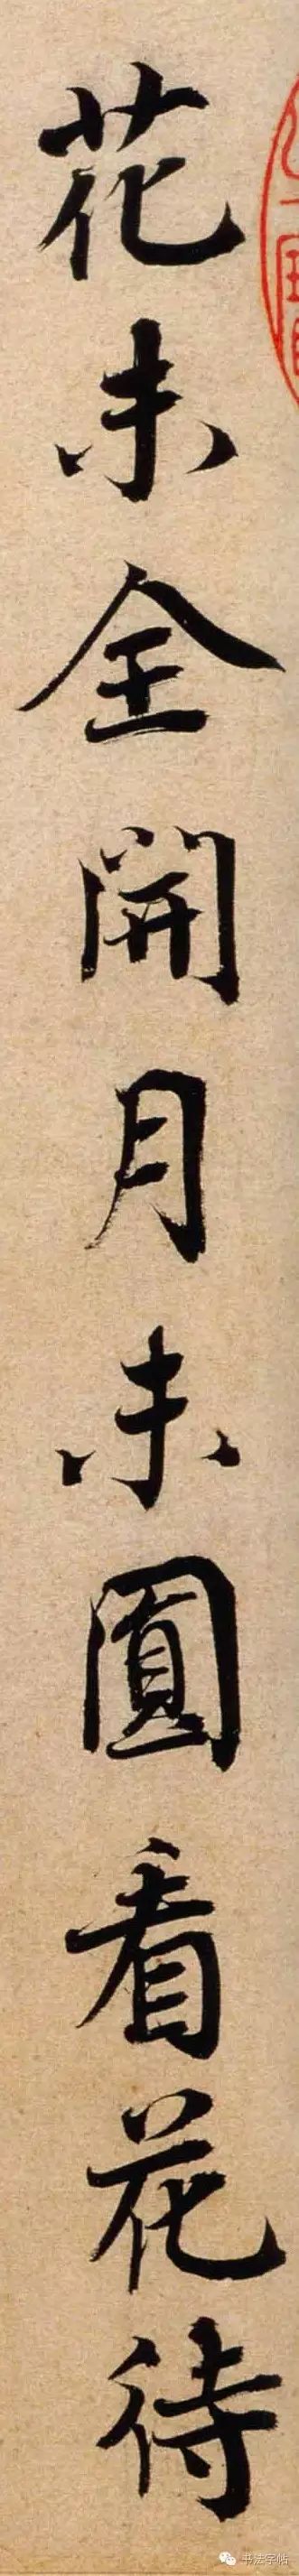 花未全開月未圓看花待
书法字帖